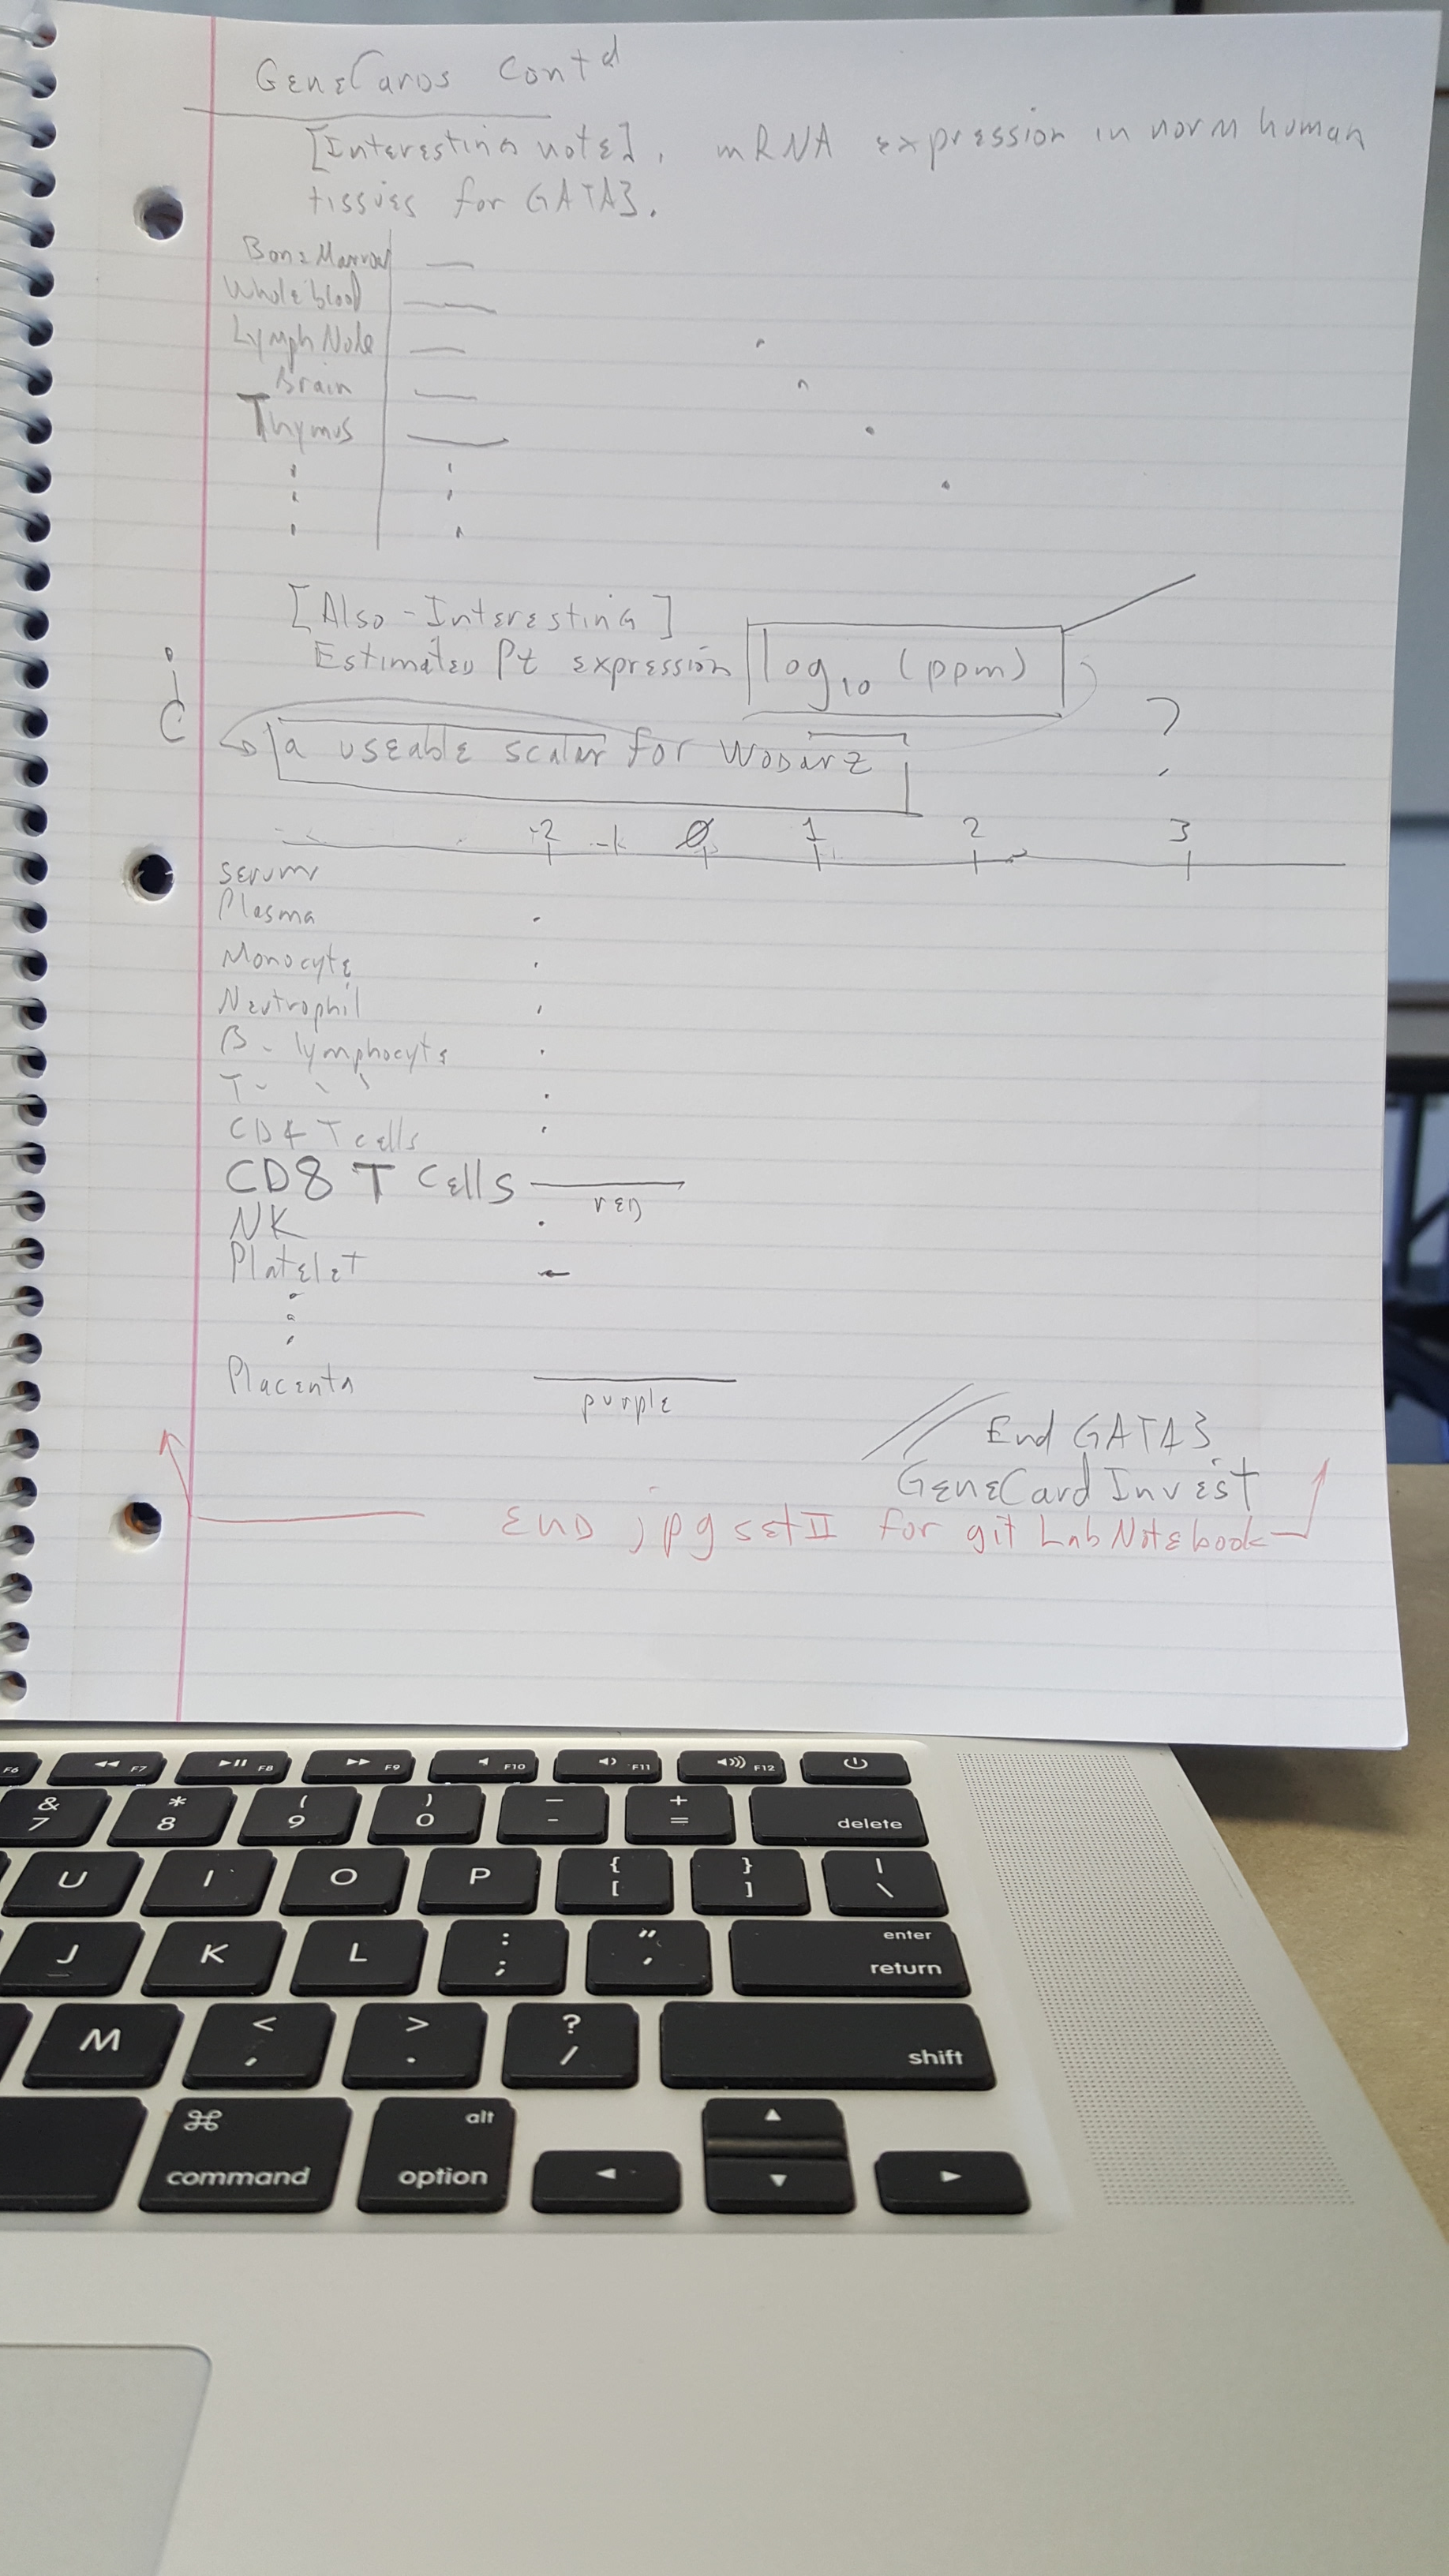 GeneCards Cont'd
[Interesting note]. mRNA expression in norm human
tissues for GATA3.
Bone Marrow
Whole blood
Lymph Node
Brain
Thymus
[Also-Interesting]
Estimated Pt expression log10 (ppm)
¿ a useable scalar for Wodarz ?
-2 -1 0 1 2 3
Serum
Plasma
Monocyte
Neutrophil
B- lymphocyte
T- " "
CD4 T cells
CD8 T Cells
red
NK
Platelet
Placenta
purple
// End GATA3
GeneCard Invest
END jpg set II for git Lab Notebook
F6 F7 F8 F9 F10 F11 F12
& 7 * 8 ( 9 ) 0 — - + = delete
U I O P { [ } ] | \
J K L : ; " ' enter return
M < , > . ? / shift
⌘ command alt option